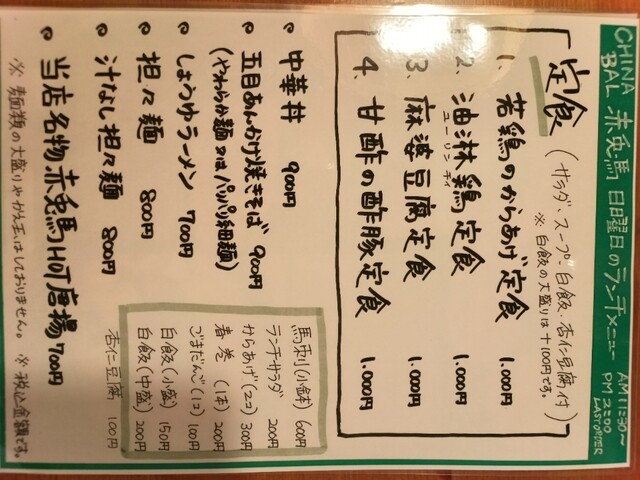 CHINA BAL 赤兎馬 日曜日のランチメニュー AM11:30~ PM2:00 LAST ORDER
定食 (サラダ・スープ・白飯・杏仁豆腐付)
※白飯の大盛りは+100円です。
1. 若鶏のからあげ定食 1.000円
2. 油淋鶏定食 1.000円
ユーリンチイ
3. 麻婆豆腐定食 1.000円
4. 甘酢の酢豚定食 1.000円
● 中華丼 900円
● 五目あんかけ焼きそば 900円
(やわらか麺 又は パリパリ細麺)
● しょうゆラーメン 700円
● 担々麺 800円
● 汁なし担々麺 800円
● 当店名物 赤兎馬HOT唐揚 700円
馬刺(小鉢) 600円
ランチサラダ 200円
からあげ(2コ) 300円
春巻(1本) 200円
ごまだんご(1コ) 100円
白飯(小盛) 150円
白飯(中盛) 200円
杏仁豆腐 100円
※ 麺類の大盛りやかえ玉はしておりません。 ※税込金額です。